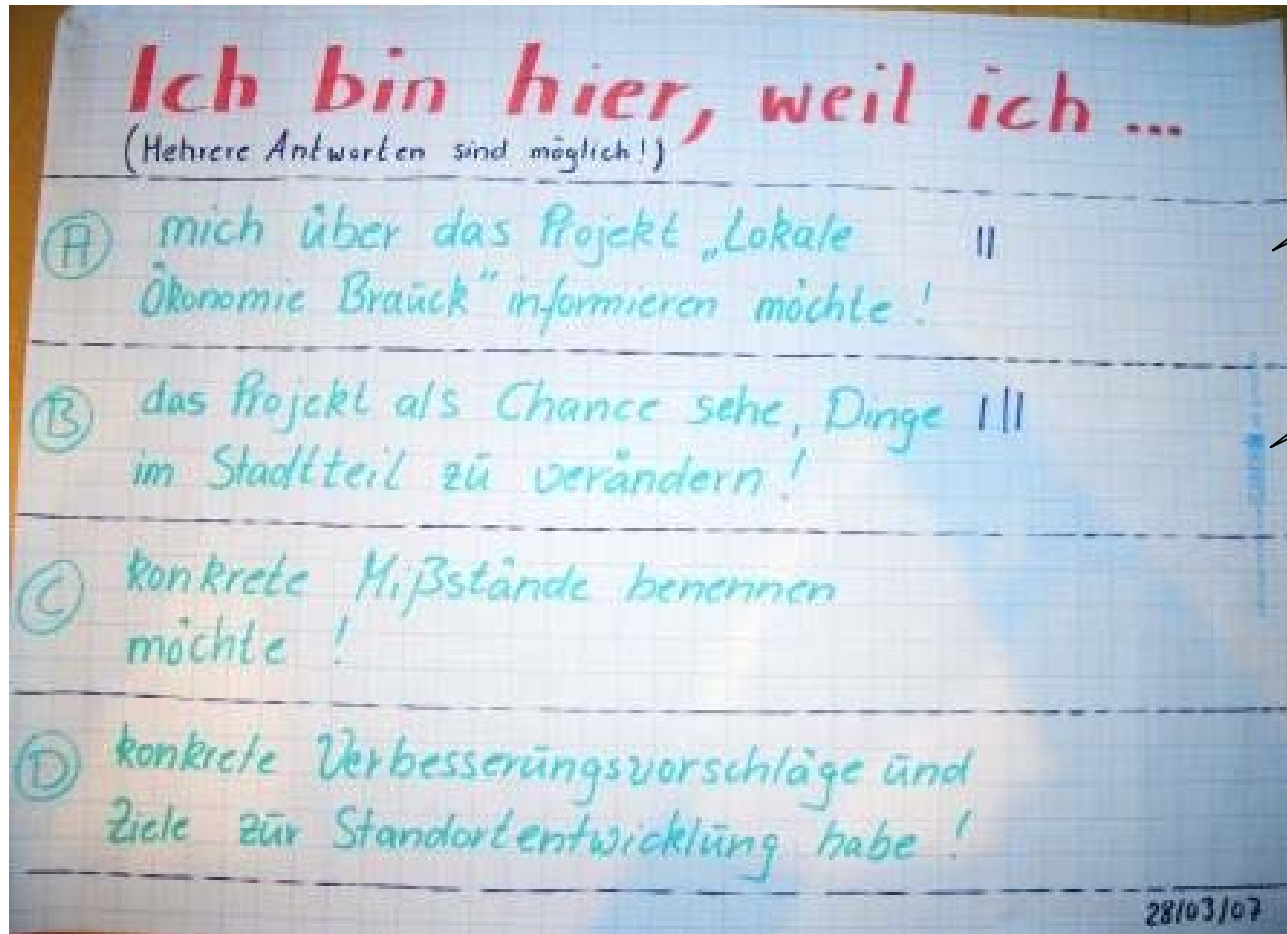 Ich bin hier, weil ich ...
(Mehrere Antworten sind möglich!)
A mich über das Projekt „Lokale ||
Ökonomie Brauck" informieren möchte!
B das Projekt als Chance sehe, Dinge |||
im Stadtteil zu verändern!
C konkrete Mißstände benennen
möchte !
D konkrete Verbesserungsvorschläge und
Ziele zur Standortentwicklung habe !
28/03/07